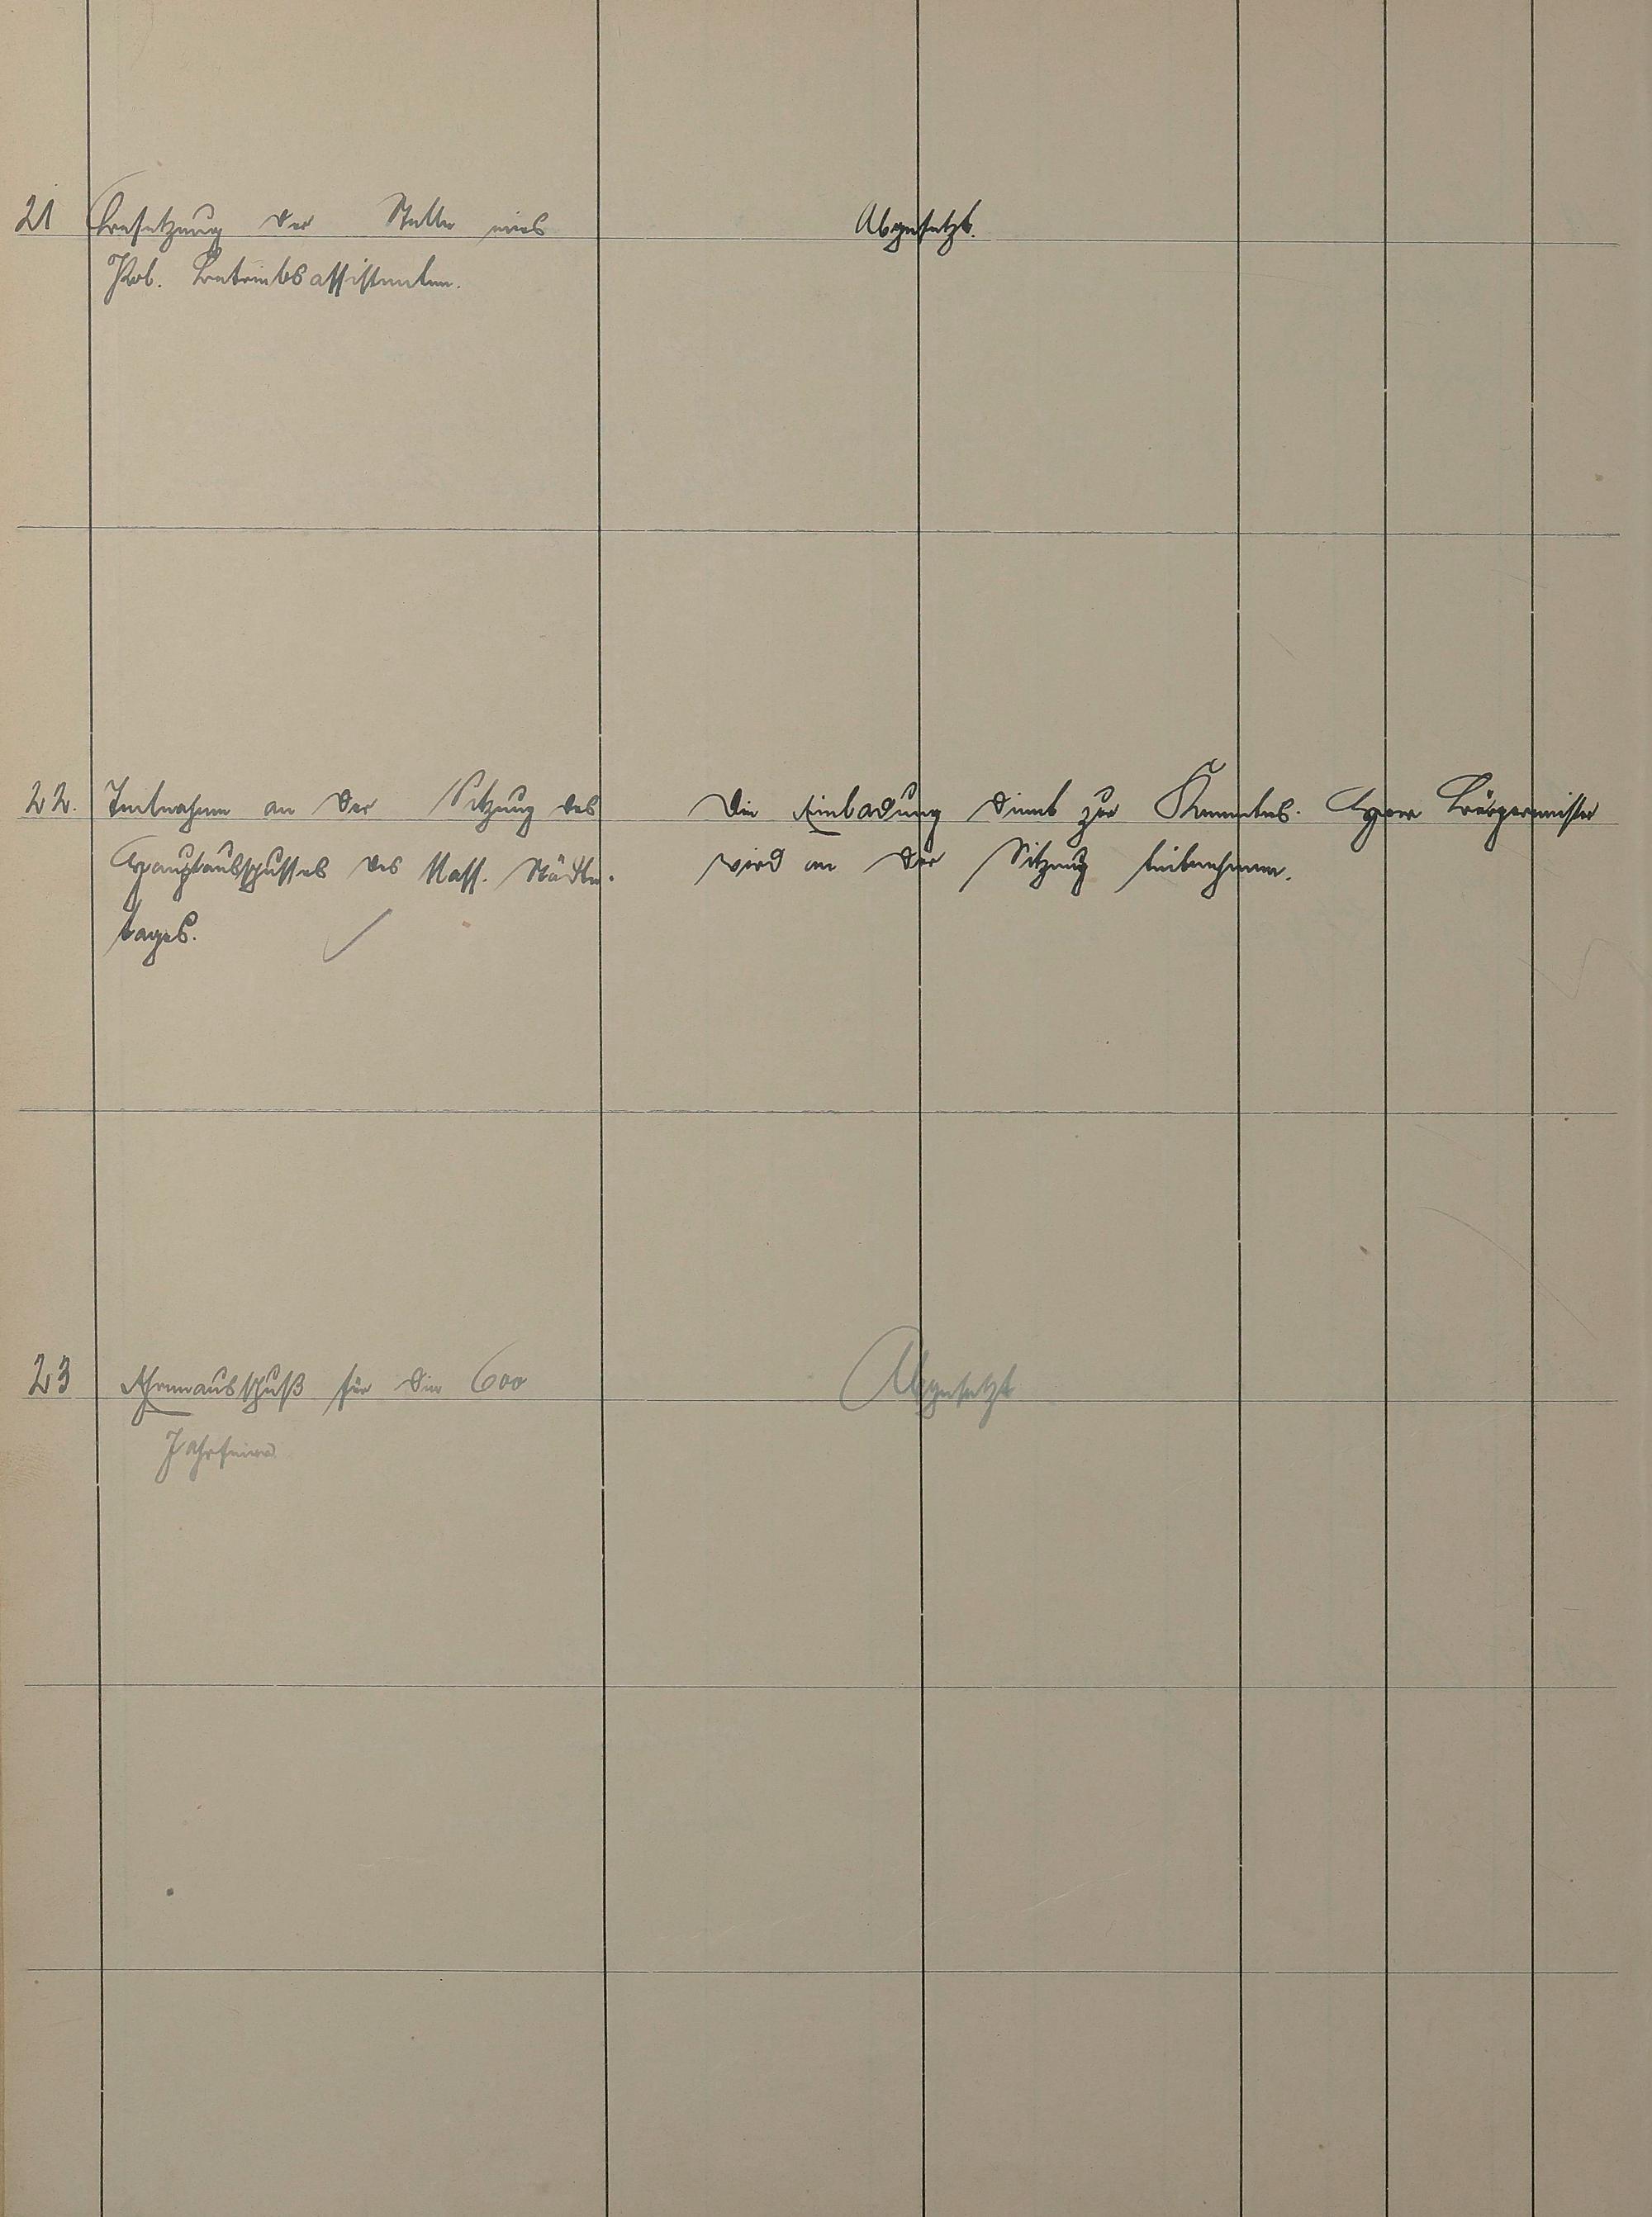 21 Besetzung der Stelle eines
Abgesetzt.
Kob. Betriebsassistenten.
22. Teilnahme an der Sitzung des
Die Einladung dient zur Kenntnis. Herr Bürgermeister
Hauptausschusses des Nass. Städte-
wird an der Sitzung teilnehmen.
tages.
23 Ehrenausschuß für die 600
Abgesetzt
Jahrfeier